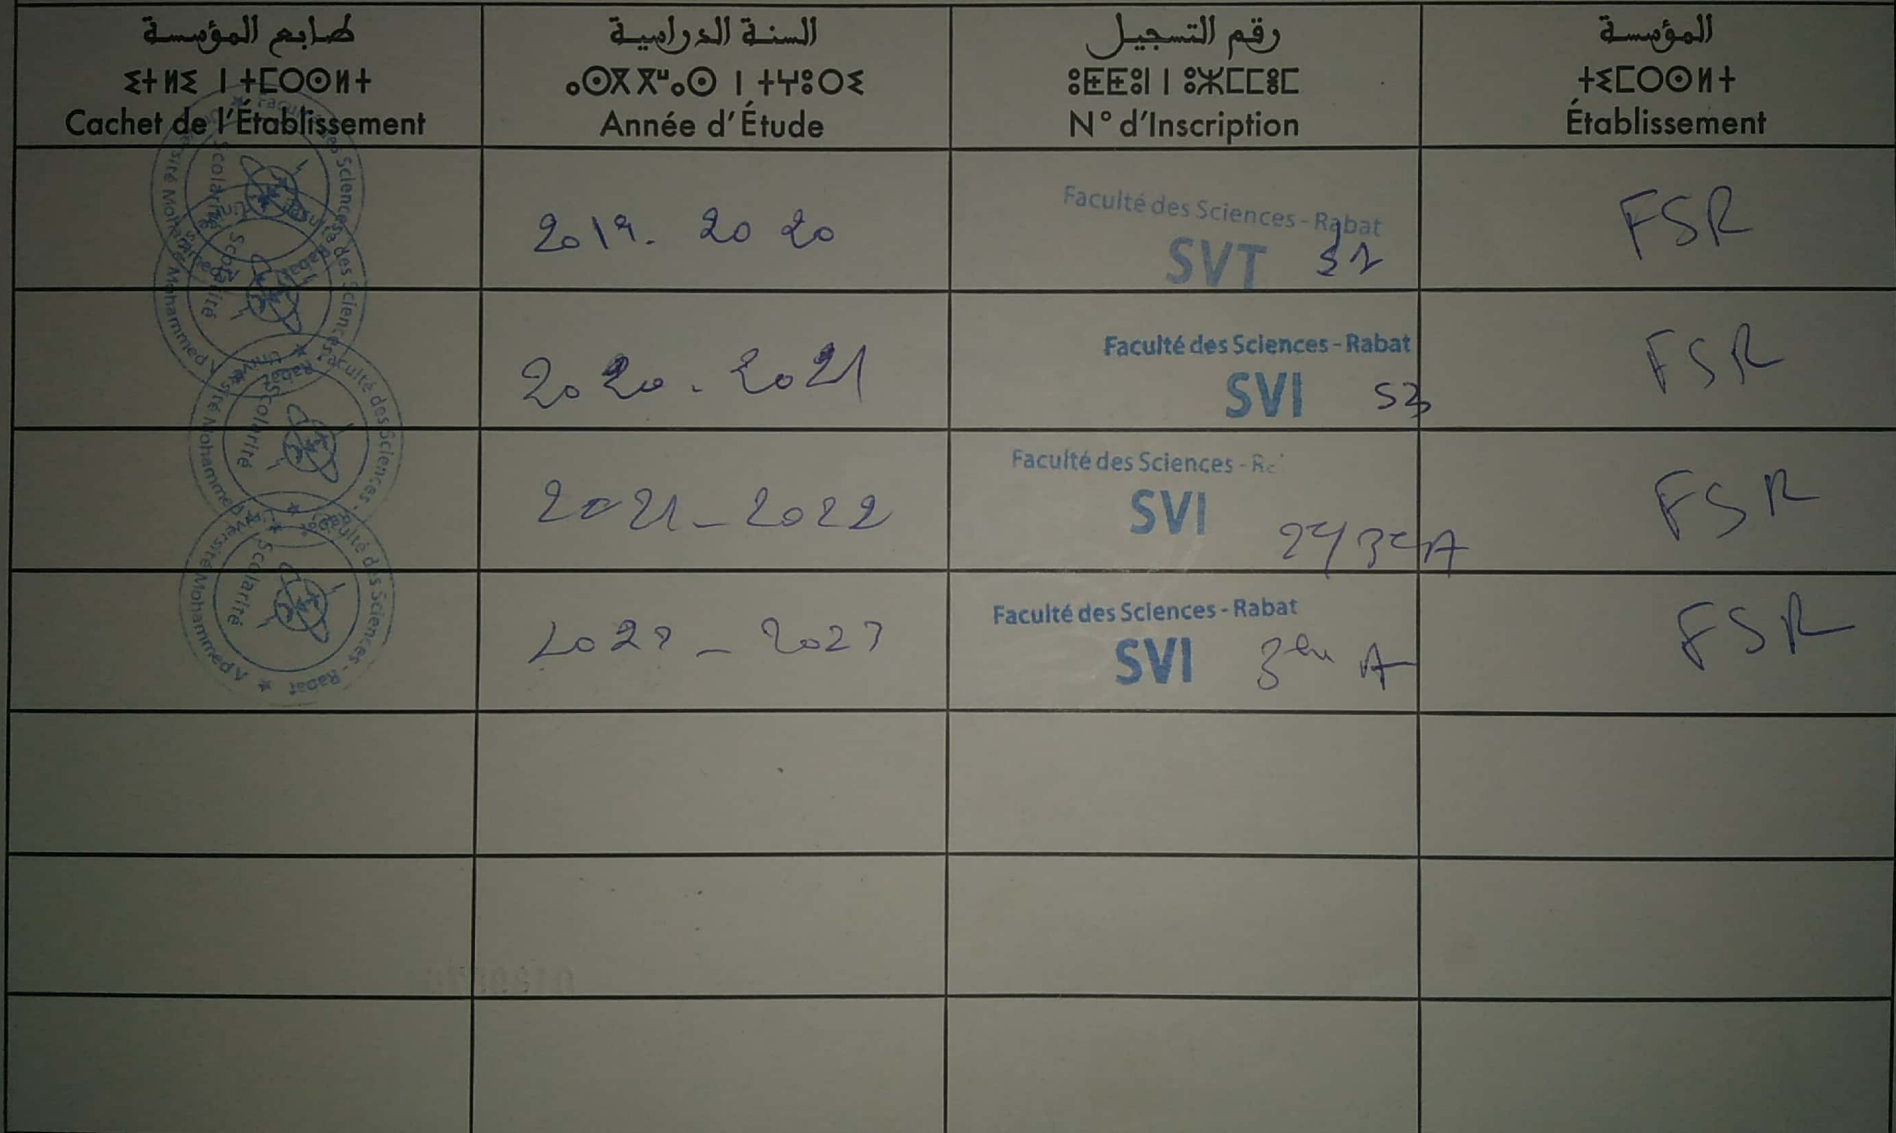 طابع المؤسسة
ⵉⵜⵍⵉ ⵏ ⵜⵎⵔⵙⵍⵜ
Cachet de l'Établissement
السنة الدراسية
ⴰⵙⴳⴳⵯⴰⵙ ⵏ ⵜⵖⵓⵔⵉ
Année d'Étude
رقم التسجيل
ⵓⵟⵟⵓⵏ ⵏ ⵓⵣⵎⵎⵓⵎ
N° d'Inscription
المؤسسة
ⵜⵉⵎⵔⵙⵍⵜ
Établissement
Faculté des Sciences - Rabat
Université Mohammed V
Scolarité
2019. 2020
Faculté des Sciences - Rabat
SVT
FSR
Faculté des Sciences - Rabat
Université Mohammed V
Scolarité
2020. 2021
Faculté des Sciences - Rabat
SVI S3
FSR
Faculté des Sciences - Rabat
Université Mohammed V
Scolarité
2021 - 2022
Faculté des Sciences -
SVI
FSR
Faculté des Sciences - Rabat
Université Mohammed V
Scolarité
2022 - 2023
Faculté des Sciences - Rabat
SVI 3em A
FSR